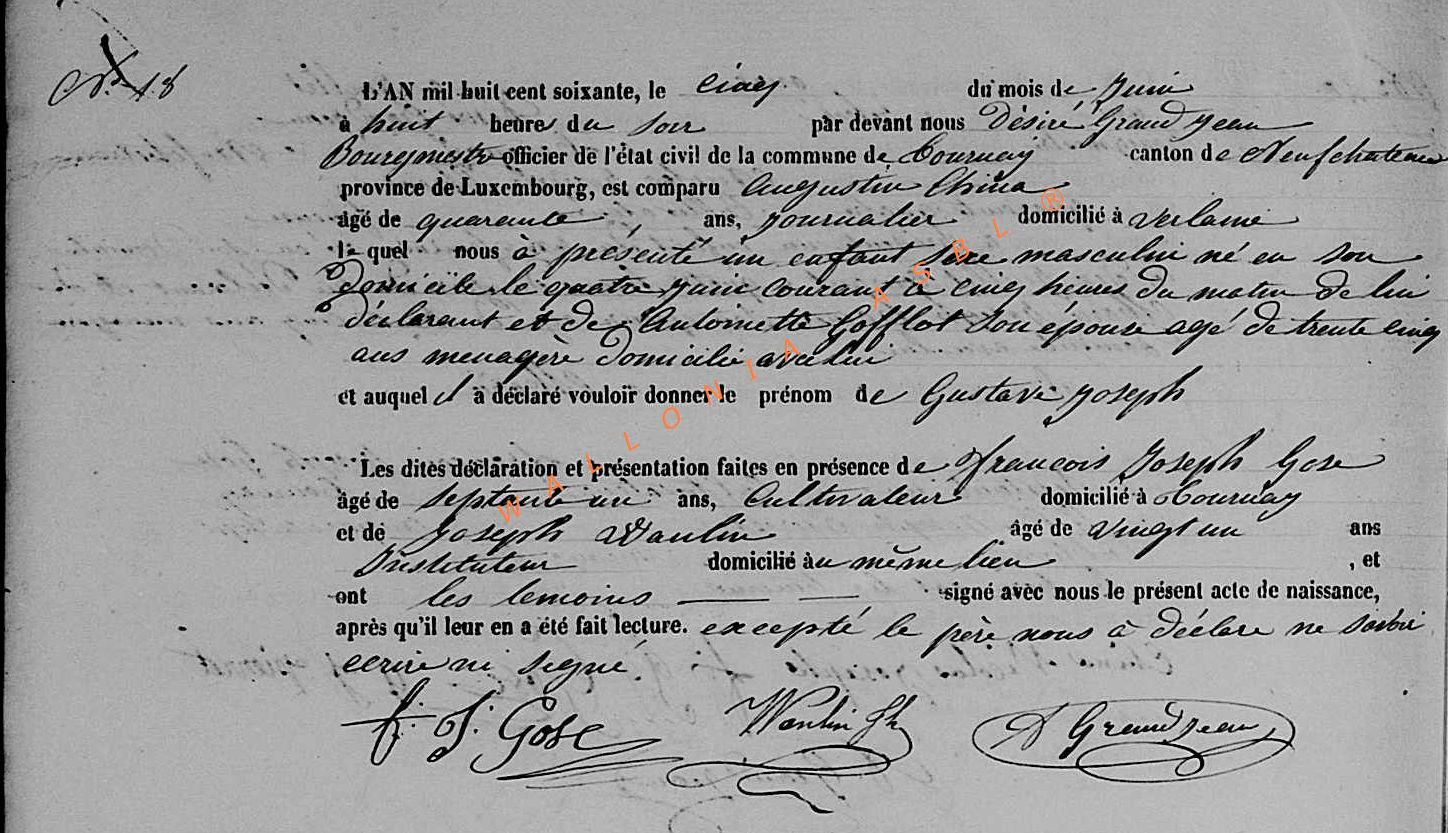 No 18
L'AN mil huit cent soixante, le cinq du mois de Juin
à huit heures du soir par devant nous Désiré Grandjean
Bourgmestre officier de l'état civil de la commune de Tournay canton de Neufchateau
province de Luxembourg, est comparu Augustin China
âgé de quarante ans, journalier domicilié à Verlaine
lequel nous à présenté un enfant sexe masculin né en son
domicile le quatre juin courant à cinq heures du matin de lui
déclarant et de Antoinette Gofflot son épouse agé de trente cinq
ans menagère domicilié avec lui
et auquel il a déclaré vouloir donner le prénom de Gustave Joseph
Les dites déclaration et présentation faites en présence de Francois Joseph Gose
âgé de septante un ans, Cultivateur domicilié à Tournay
et de Joseph Wautin âgé de vingt un ans
Instituteur domicilié au même lieu , et
ont les temoins signé avec nous le présent acte de naissance,
après qu'il leur en a été fait lecture. excepté le père nous à déclare ne savoir
ecrire ni signé.
f. J. Gose Wautin Jh D Grandjean
WALLONIA ASBL ®